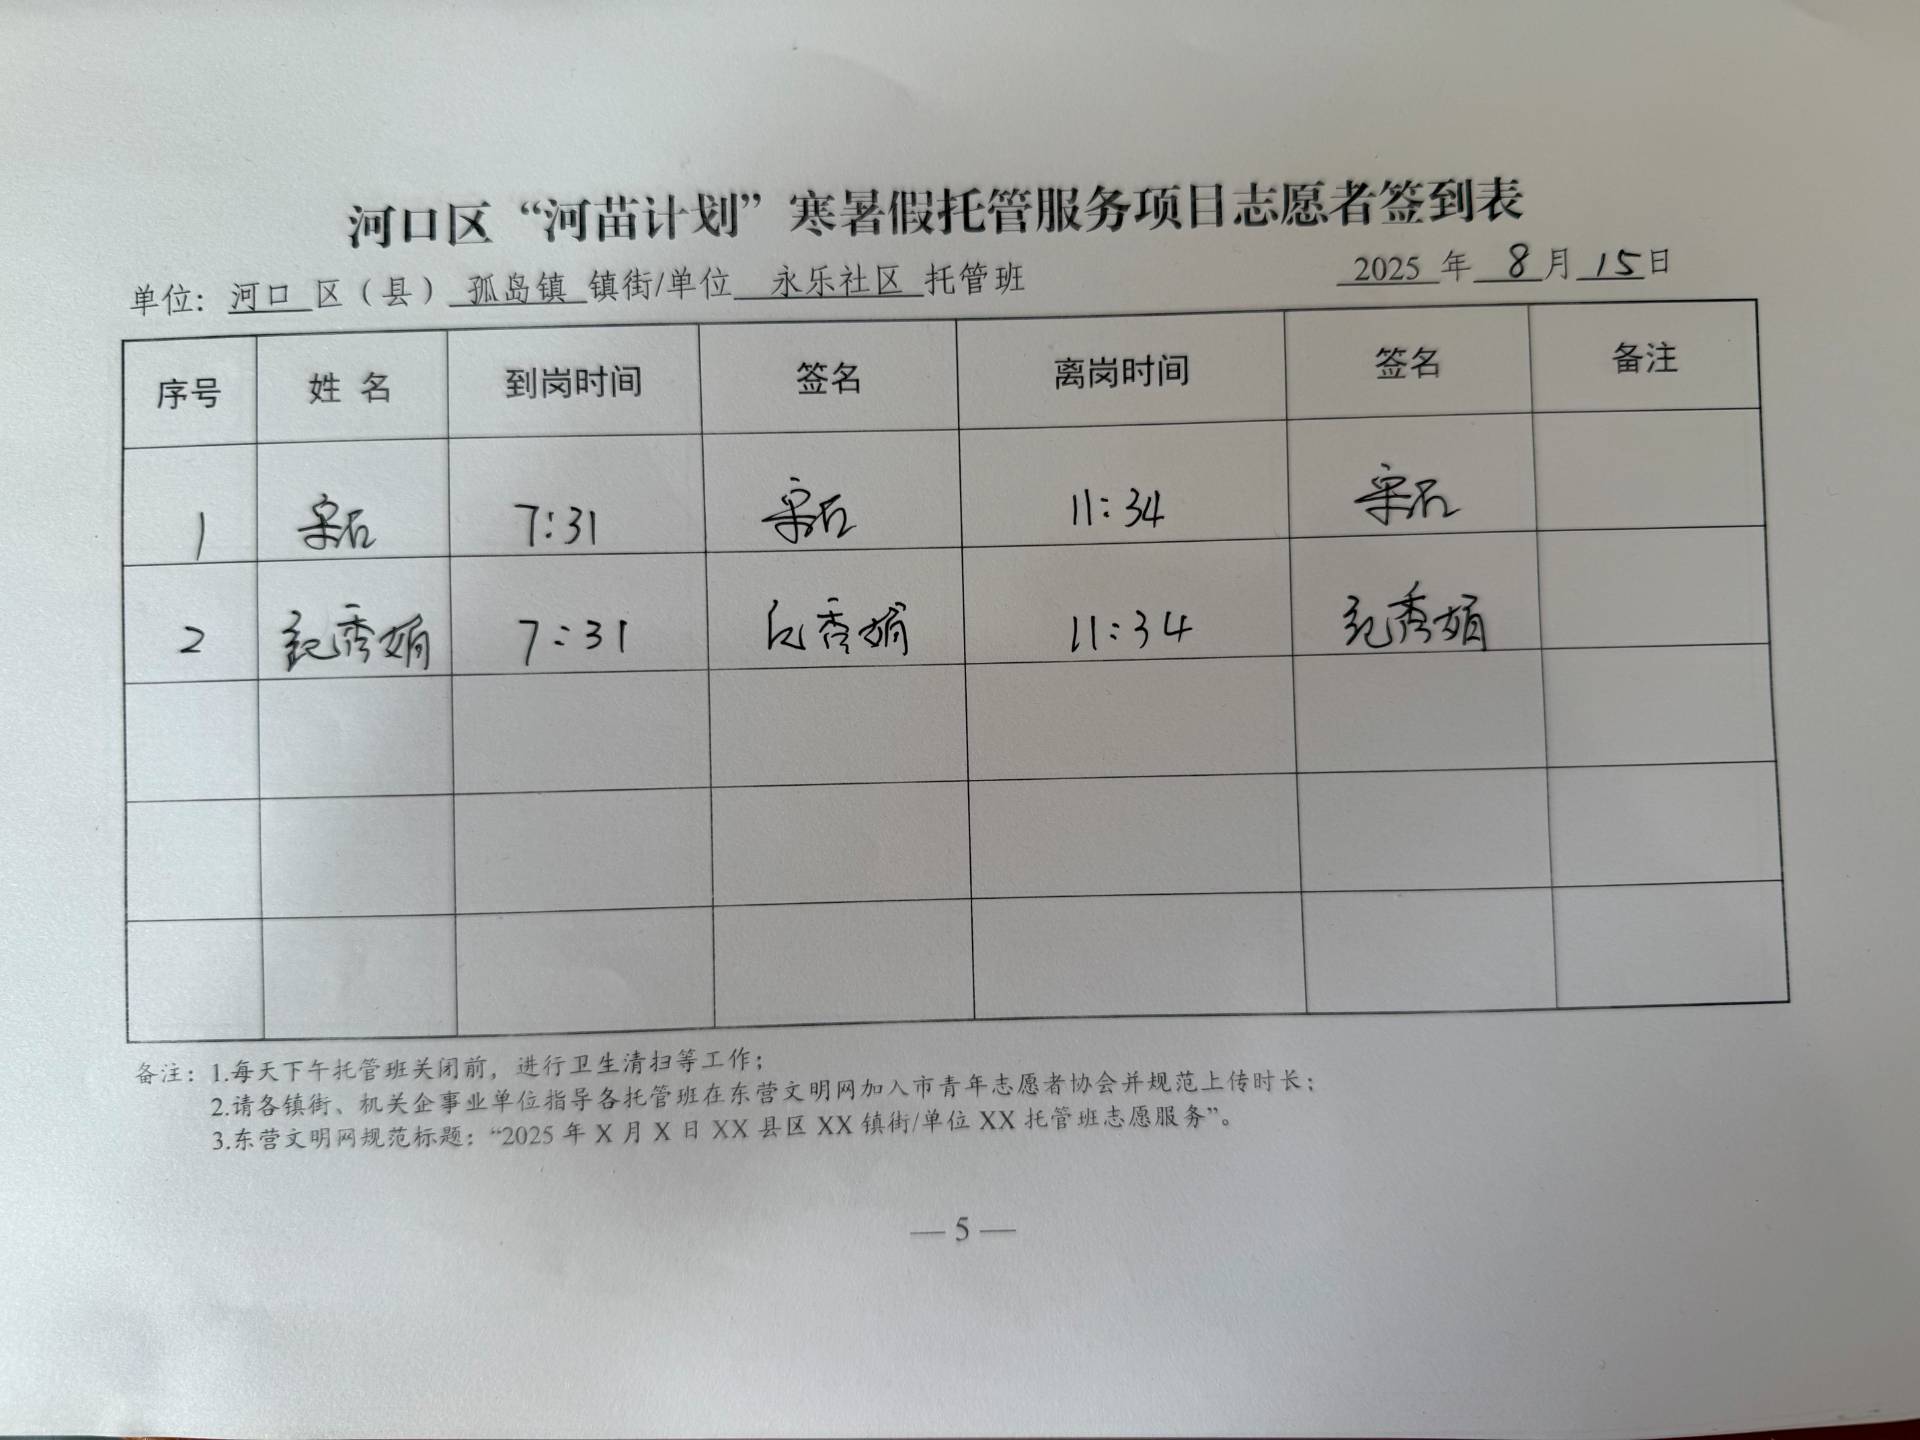 河口区“河苗计划”寒暑假托管服务项目志愿者签到表
单位：河口 区（县） 孤岛镇 镇街/单位 永乐社区 托管班 2025 年 8 月 15 日
序号 姓 名 到岗时间 签名 离岗时间 签名 备注
1 7:31 11:34
2 纪秀娟 7:31 纪秀娟 11:34 纪秀娟
备注：1.每天下午托管班关闭前，进行卫生清扫等工作；
2.请各镇街、机关企事业单位指导各托管班在东营文明网加入市青年志愿者协会并规范上传时长；
3.东营文明网规范标题：“2025 年 X 月 X 日 XX 县区 XX 镇街/单位 XX 托管班志愿服务”。
— 5 —